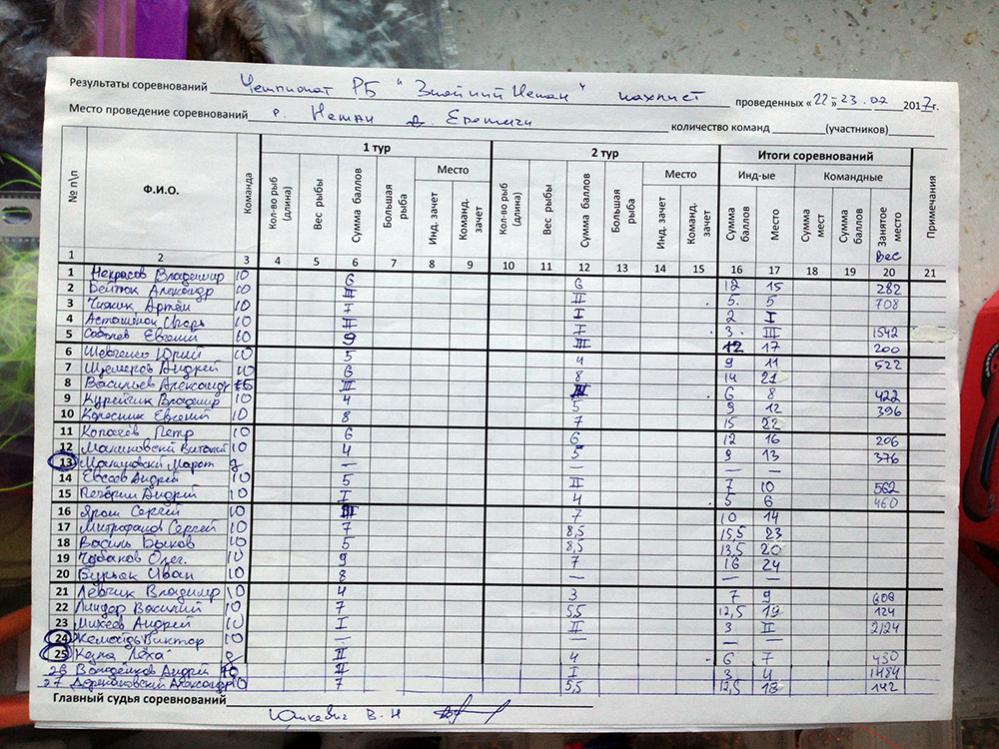 Результаты соревнований Чемпионат РБ "Знойный Неман" нахлыст проведенных «22»-23.07 2017г.
Место проведение соревнований р. Неман д. Еремичи количество команд (участников)
№ п\п Ф.И.О. Команда 1 тур 2 тур Итоги соревнований Примечания
Место Место Инд-ые Командные
Кол-во рыб (длина) Вес рыбы Сумма баллов Большая рыба Инд. зачет Команд. зачет Кол-во рыб (длина) Вес рыбы Сумма баллов Большая рыба Инд. зачет Команд. зачет Сумма баллов Место Сумма мест Сумма баллов Занятое место Вес
1 2 3 4 5 6 7 8 9 10 11 12 13 14 15 16 17 18 19 20 21
1 Некрасов Владимир 10 6 6 12 15 282
2 Бейтюк Александр 10 III II 5. 5 708
3 Чижик Артём 10 I I 2 I
4 Асташёнок Игорь 10 II I 3. III 1542
5 Соболев Евгений 10 9 III 12 17 200
6 Шевченко Юрий 10 5 4 9 11 522
7 Андрей 10 6 8 14 21
8 Васильев Александр III III 6 8 422
9 Курейчик Владимир 10 4 5 9 12 396
10 Колесник Евгений 10 8 7 15 22
11 Копачёв Петр 10 6 6 12 16 206
12 Малиновский Виталий 10 4 5 9 13 376
13 Марат — — — —
14 Евсеев Андрей 10 5 II 7 10 562
15 Печёрин Андрей 10 I 4 5 6 460
16 Ярош Сергей 10 III 7 10 14
17 Митрофанов Сергей 10 7 8,5 15,5 23
18 Василь Быков 10 5 8,5 13,5 20
19 Чубаков Олег. 10 9 7 16 24
20 Бурьак Иван 10 8 — — —
21 Левчик Владимир 10 4 3 7 9 608
22 Линдор Василий 10 7 5,5 12,5 19 124
23 Михеев Андрей 10 I II 3 II 2124
24 Виктор 10 — — — —
25 "Лёха" II 4 6 7 430
26 Андрей 10 II I 3 4 1484
27 Александр 10 7 5,5 12,5 18 142
Главный судья соревнований
Юшкевич В.Н